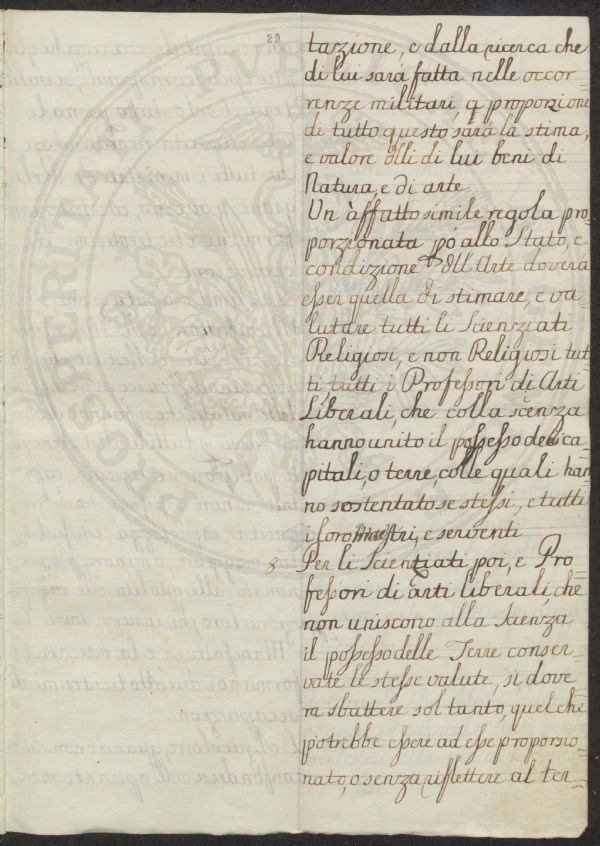 29
tazione, e dalla ricerca che
di lui sarà fatta nelle occor-
renze militari, a proporzione
di tutto questo sarà la stima,
e valore d̃lli di lui beni di
Natura, e di arte
Un' affatto simile regola pro-
porzionata po' allo Stato, e
condizione d̃ll Arte dovera
esser quella di stimare, e va-
lutare tutti li Scienziati
Religiosi, e non Religiosi tut-
ti tutti i Professori di Arti
Liberali, che colla scenza
hanno unito il possesso dei ca-
pitali, o terre, colle quali han-
no sostentato se stessi, e tutti
i loro Ministri, e serventi
8 Per li Scientiati poi, e Pro-
fessori di arti liberali, che
non uniscono alla Scienza
il possesso delle Terre conser-
vate le stesse valute, si dove
ra sbattere sol tanto, quel che
potrebbe essere ad esse proporsio-
nato, o senza riflettere al ter-
POSTERITATI
PUBLI